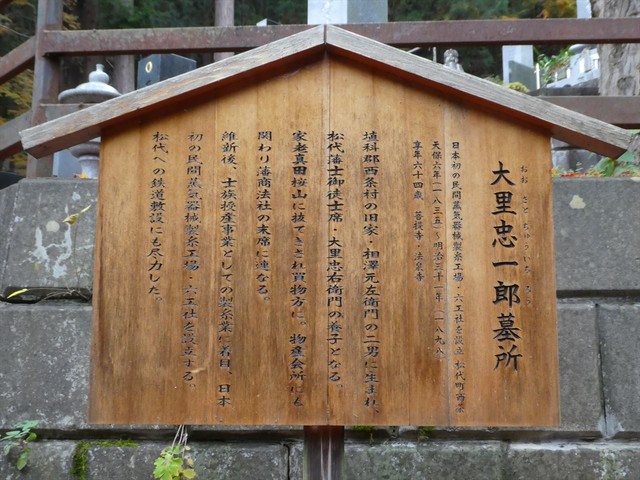 おお さと ちゅういち ろう
大里忠一郎墓所
日本初の民間蒸気器械製糸工場・六工社を設立 松代町西条
天保六年(一八三五)~明治三十一年(一八九八)
享年六十四歳、菩提寺・法泉寺
埴科郡西条村の旧家・相澤元左衛門の二男に生まれ、
松代藩士御徒士席・大里忠右衛門の養子となる。
家老真田桜山に抜てきされ買物方に。物産会所にも
関わり藩商法社の末席に連なる。
維新後、士族授産事業としての製糸業に着目、日本
初の民間蒸気器械製糸工場・六工社を設立する。
松代への鉄道敷設にも尽力した。